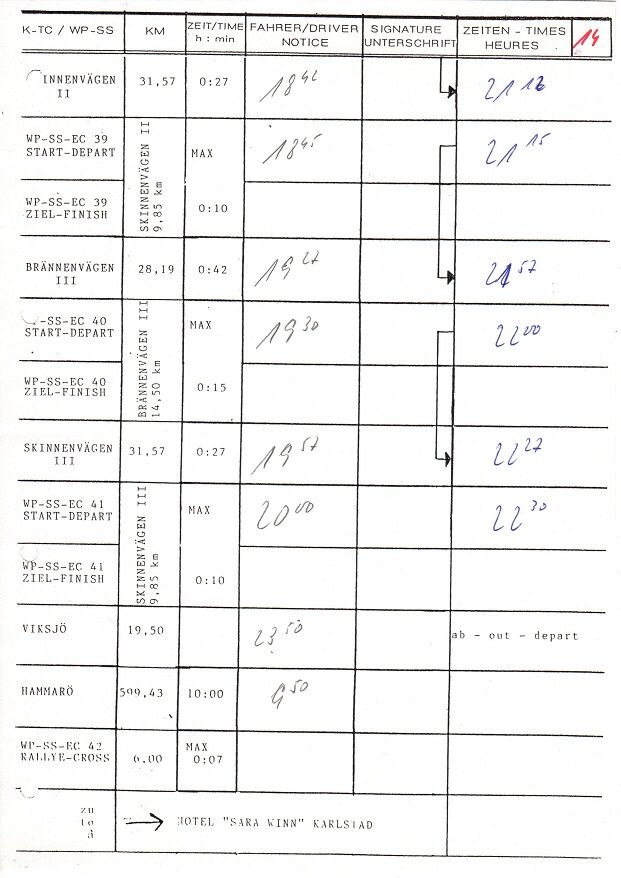 K-TC / WP-SS
KM
ZEIT/TIME
h : min
FAHRER/DRIVER
NOTICE
SIGNATURE
UNTERSCHRIFT
ZEITEN - TIMES
HEURES
14
INNENVÄGEN
II
31,57
0:27
18 42
21 12
WP-SS-EC 39
START-DEPART
SKINNENVÄGEN II
9,85 km
MAX
18 45
21 15
WP-SS-EC 39
ZIEL-FINISH
0:10
BRÄNNENVÄGEN
III
28,19
0:42
19 27
21 57
-SS-EC 40
START-DEPART
BRÄNNENVÄGEN III
14,50 km
MAX
19 30
22 00
WP-SS-EC 40
ZIEL-FINISH
0:15
SKINNENVÄGEN
III
31,57
0:27
19 57
22 27
WP-SS-EC 41
START-DEPART
SKINNENVÄGEN III
9,85 km
MAX
20 00
22 30
WP-SS-EC 41
ZIEL-FINISH
0:10
VIKSJÖ
19,50
23 50
ab - out - depart
HAMMARÖ
599,43
10:00
9 50
WP-SS-EC 42
RALLYE-CROSS
6,00
MAX
0:07
zu
to
à
HOTEL "SARA WINN" KARLSTAD